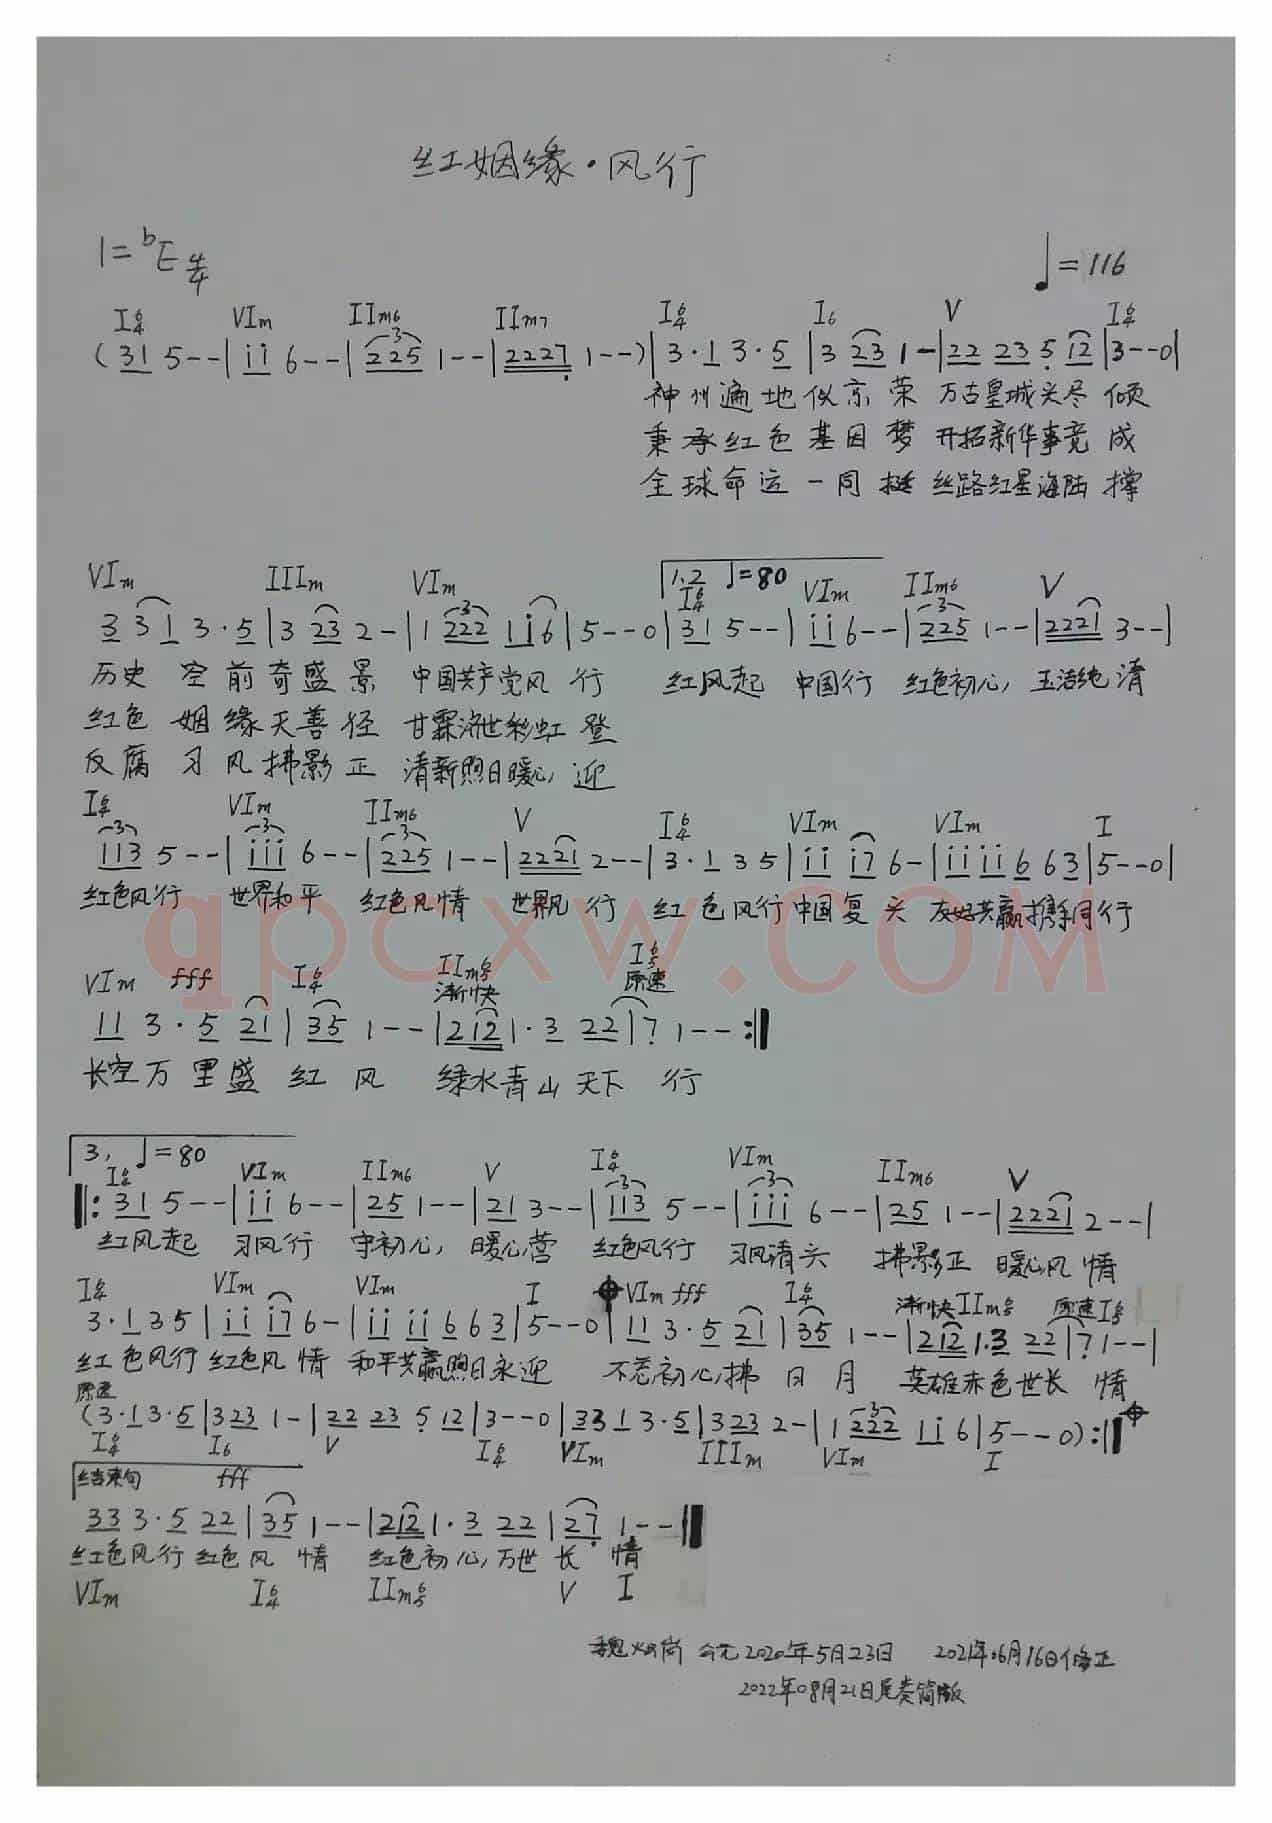 红姻缘·风行
1=ᵇE 4/4
♩=116
I6/4 VIm IIm6 IIm7 I6/4 I6 V I6/4
(31 5--|ii 6--|225 1--|2227 1--)|3·1 3·5|3 23 1-|22 23 5 12|3--0|
神州遍地似京荣 万古皇城头尽倾
秉承红色基因梦 开拓新华事竞成
全球命运一同挺 丝路红星海陆撑
VIm IIIm VIm 1.2 ♩=80 I6/4 VIm IIm6 V
3 31 3·5|3 23 2-|1 222 1i6|5--0|31 5--|ii 6--|225 1--|2221 3--|
历史 空前奇盛景 中国共产党风行 红风起 中国行 红色初心, 玉洁纯清
红色 姻缘天善径 甘霖济世彩虹登
反腐 习风拂影正 清新煦日暖心, 迎
I6/4 VIm IIm6 V I6/4 VIm VIm I
113 5--|iii 6--|225 1--|2221 2--|3·1 35|ii i7 6-|iiii6 63|5--0|
红色风行 世界和平 红色风情 世界风行 红色风行 中国复兴 友好共赢携手同行
qpcxw.com
VIm fff I6/4 IIm6/5 渐快 I6/5 原速
11 3·5 21|35 1--|212 1·3 22|7 1--:‖
长空万里盛红风 绿水青山天下行
3, ♩=80
I6/4 VIm IIm6 V I6/4 VIm IIm6 V
‖:31 5--|ii 6--|25 1--|21 3--|113 5--|iii 6--|25 1--|2221 2--|
红风起 习风行 守初心, 暖心营 红色风行 习风清兴 拂影正 暖心风情
I6/4 VIm VIm I VIm fff I6/4 渐快 IIm6/5 原速 I6/5
3·1 35|ii i7 6-|ii ii6 63|5--0|11 3·5 21|35 1--|212 1·3 22|7 1--|
红色风行 红色风情 和平共赢煦日永迎 不忘初心, 拂日月 英雄赤色世长情
原速
(3·1 3·5|323 1-|22 23 5 12|3--0|33 1 3·5|323 2-|1 222 1i 6|5--0):‖
I6/4 I6 V I6/4 VIm IIIm VIm I
结束句 fff
33 3·5 22|35 1--|212 1·3 22|27 1--‖
红色风行 红色风情 红色初心, 万世长情
VIm I6/4 IIm6/5 V I
公元2020年5月23日 2021年06月16日修正
2022年08月21日尾奏简版